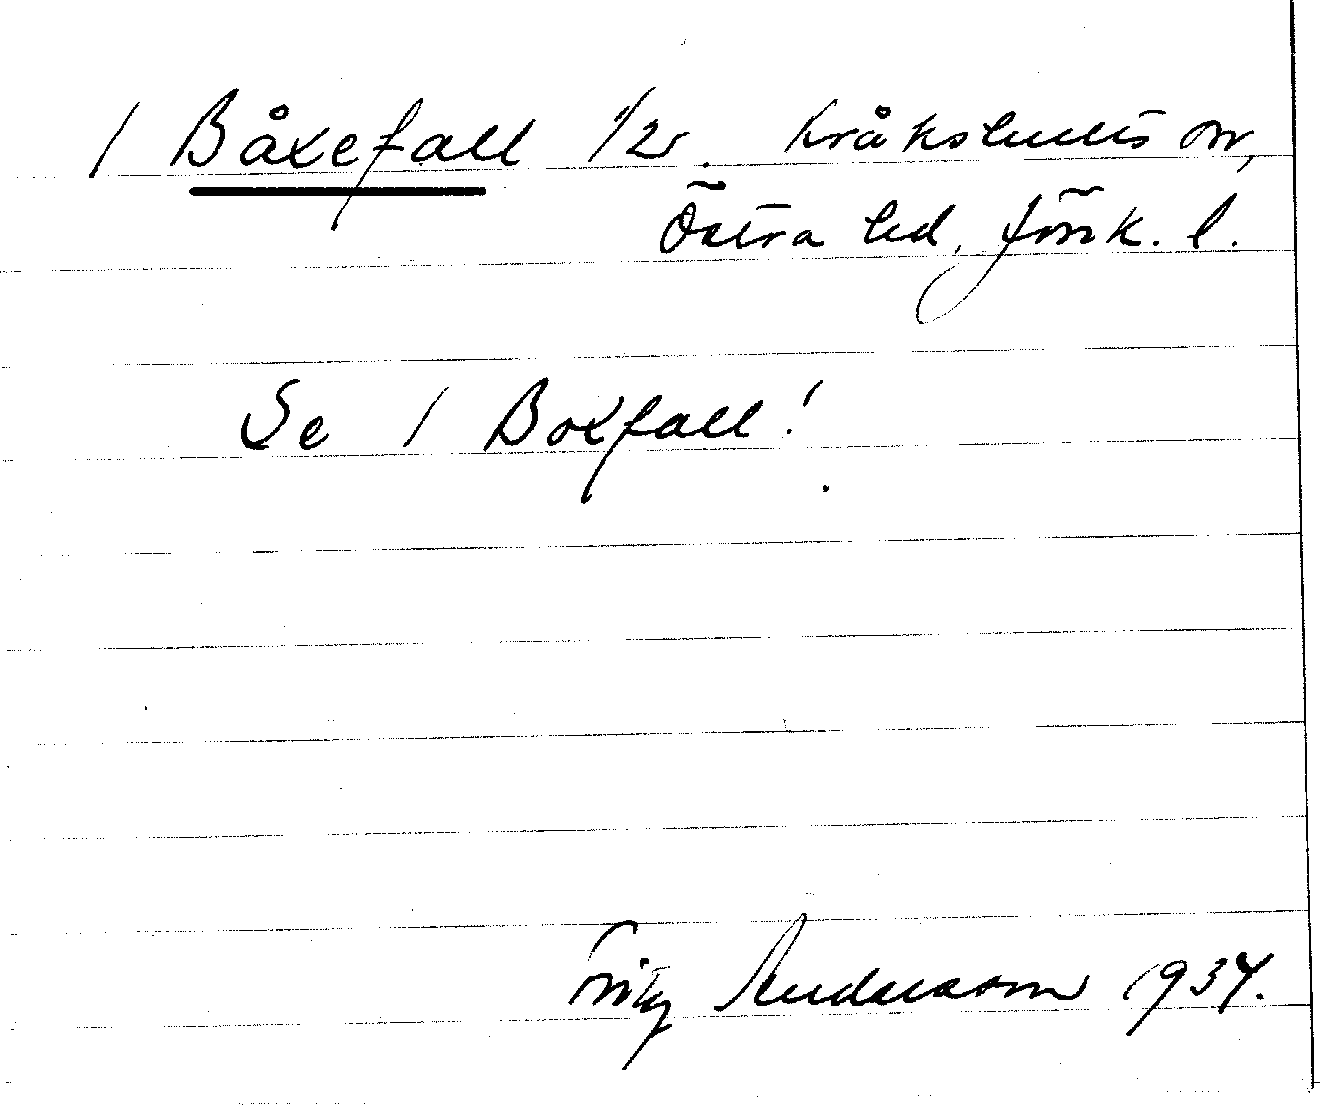 / Båxefall 1/2r. Kråkshults sn,
Östra hd, Jönk. l.
Se / Boxfall!
Fritz Andersson 1934.